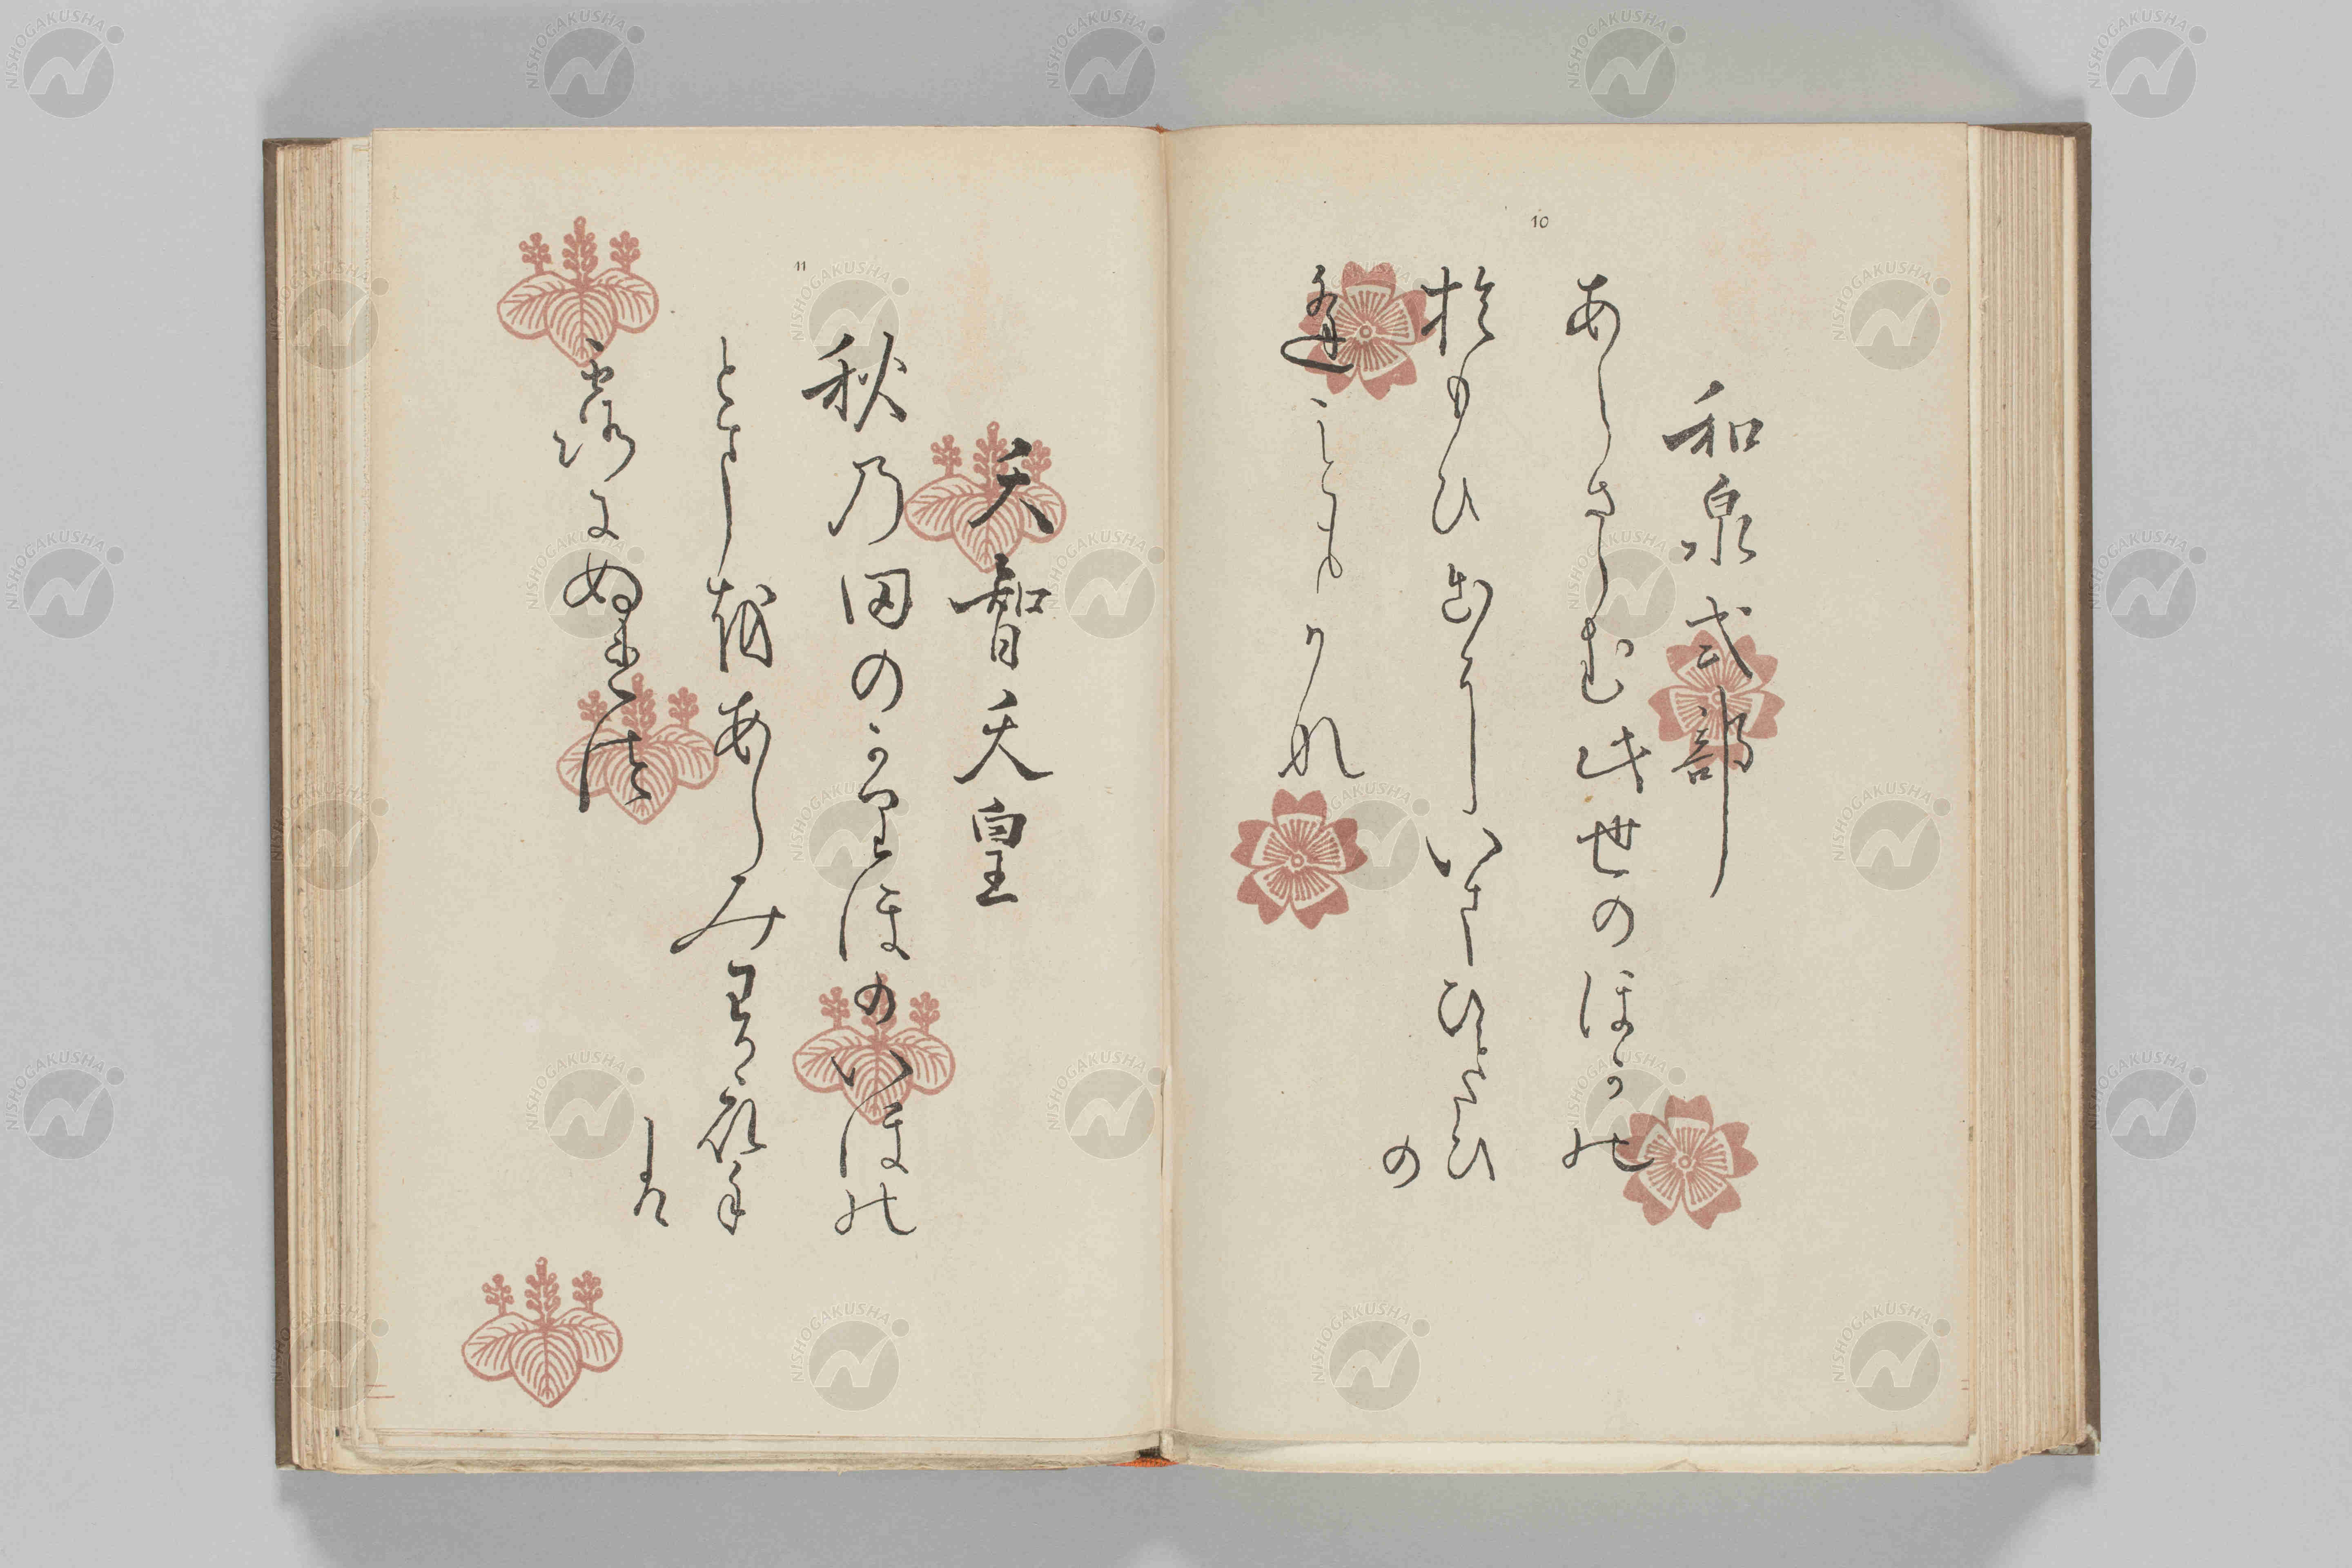 10
和泉式部
あらさらむ此世のほかの
おもひ出にいまひとたひ
の
逢こともかな
11
天智天皇
秋乃田のかりほのいほの
とまをあらみわか衣手
は
露にぬれつつ
NISHOGAKUSHA